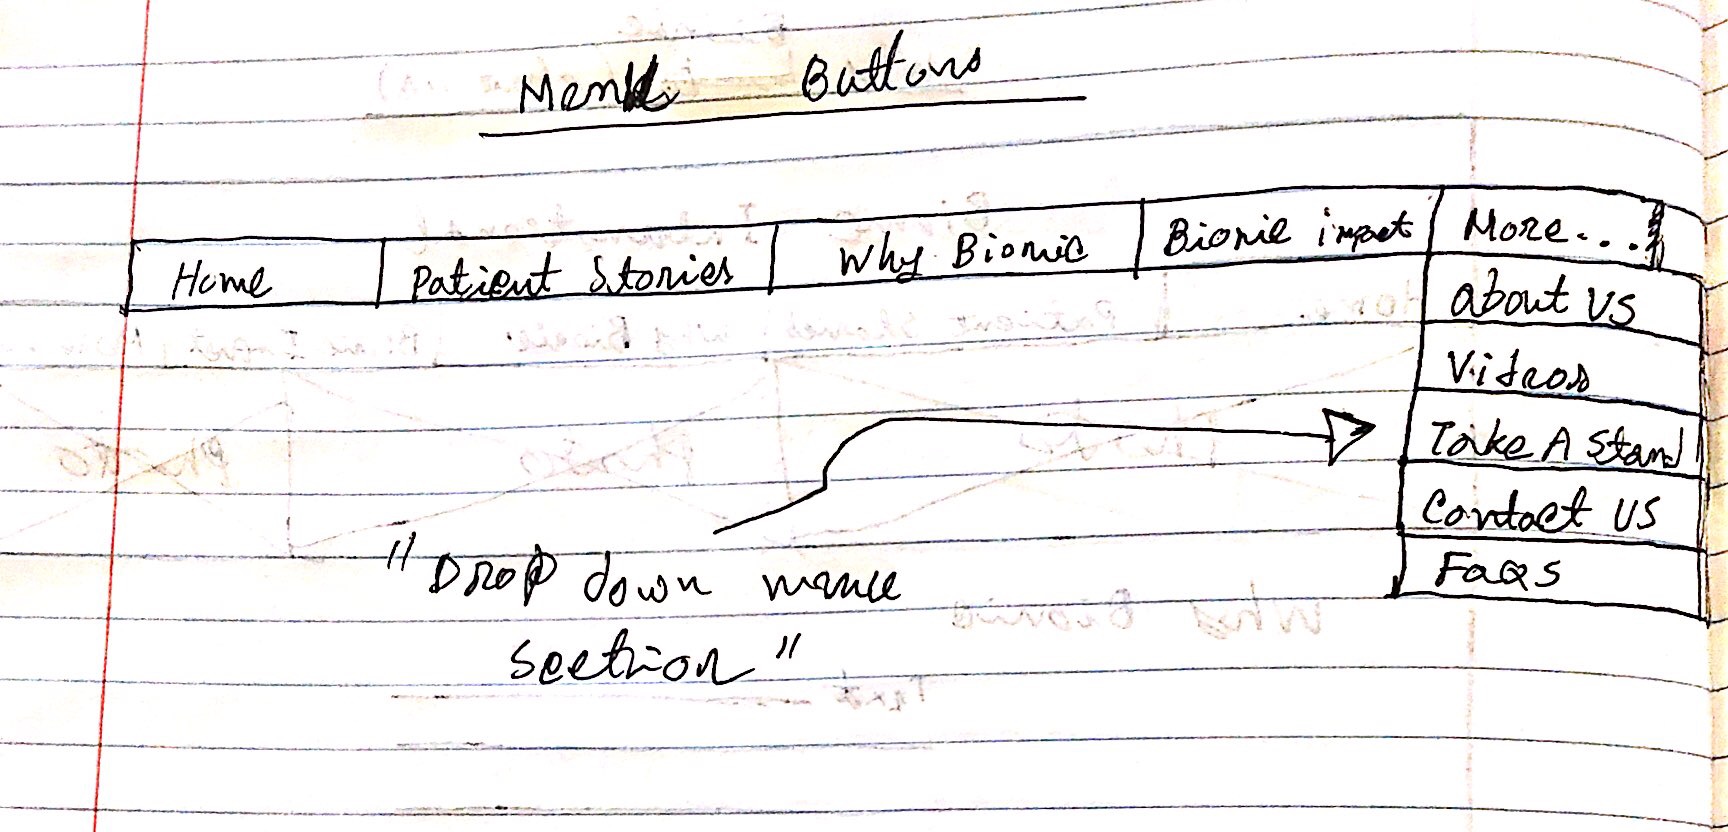 Menu Buttons
Home | Patient Stories | Why Bionic | Bionic impact | More...
About US
Videos
Take A Stand
Contact US
FAQS
"Drop down menue
section"